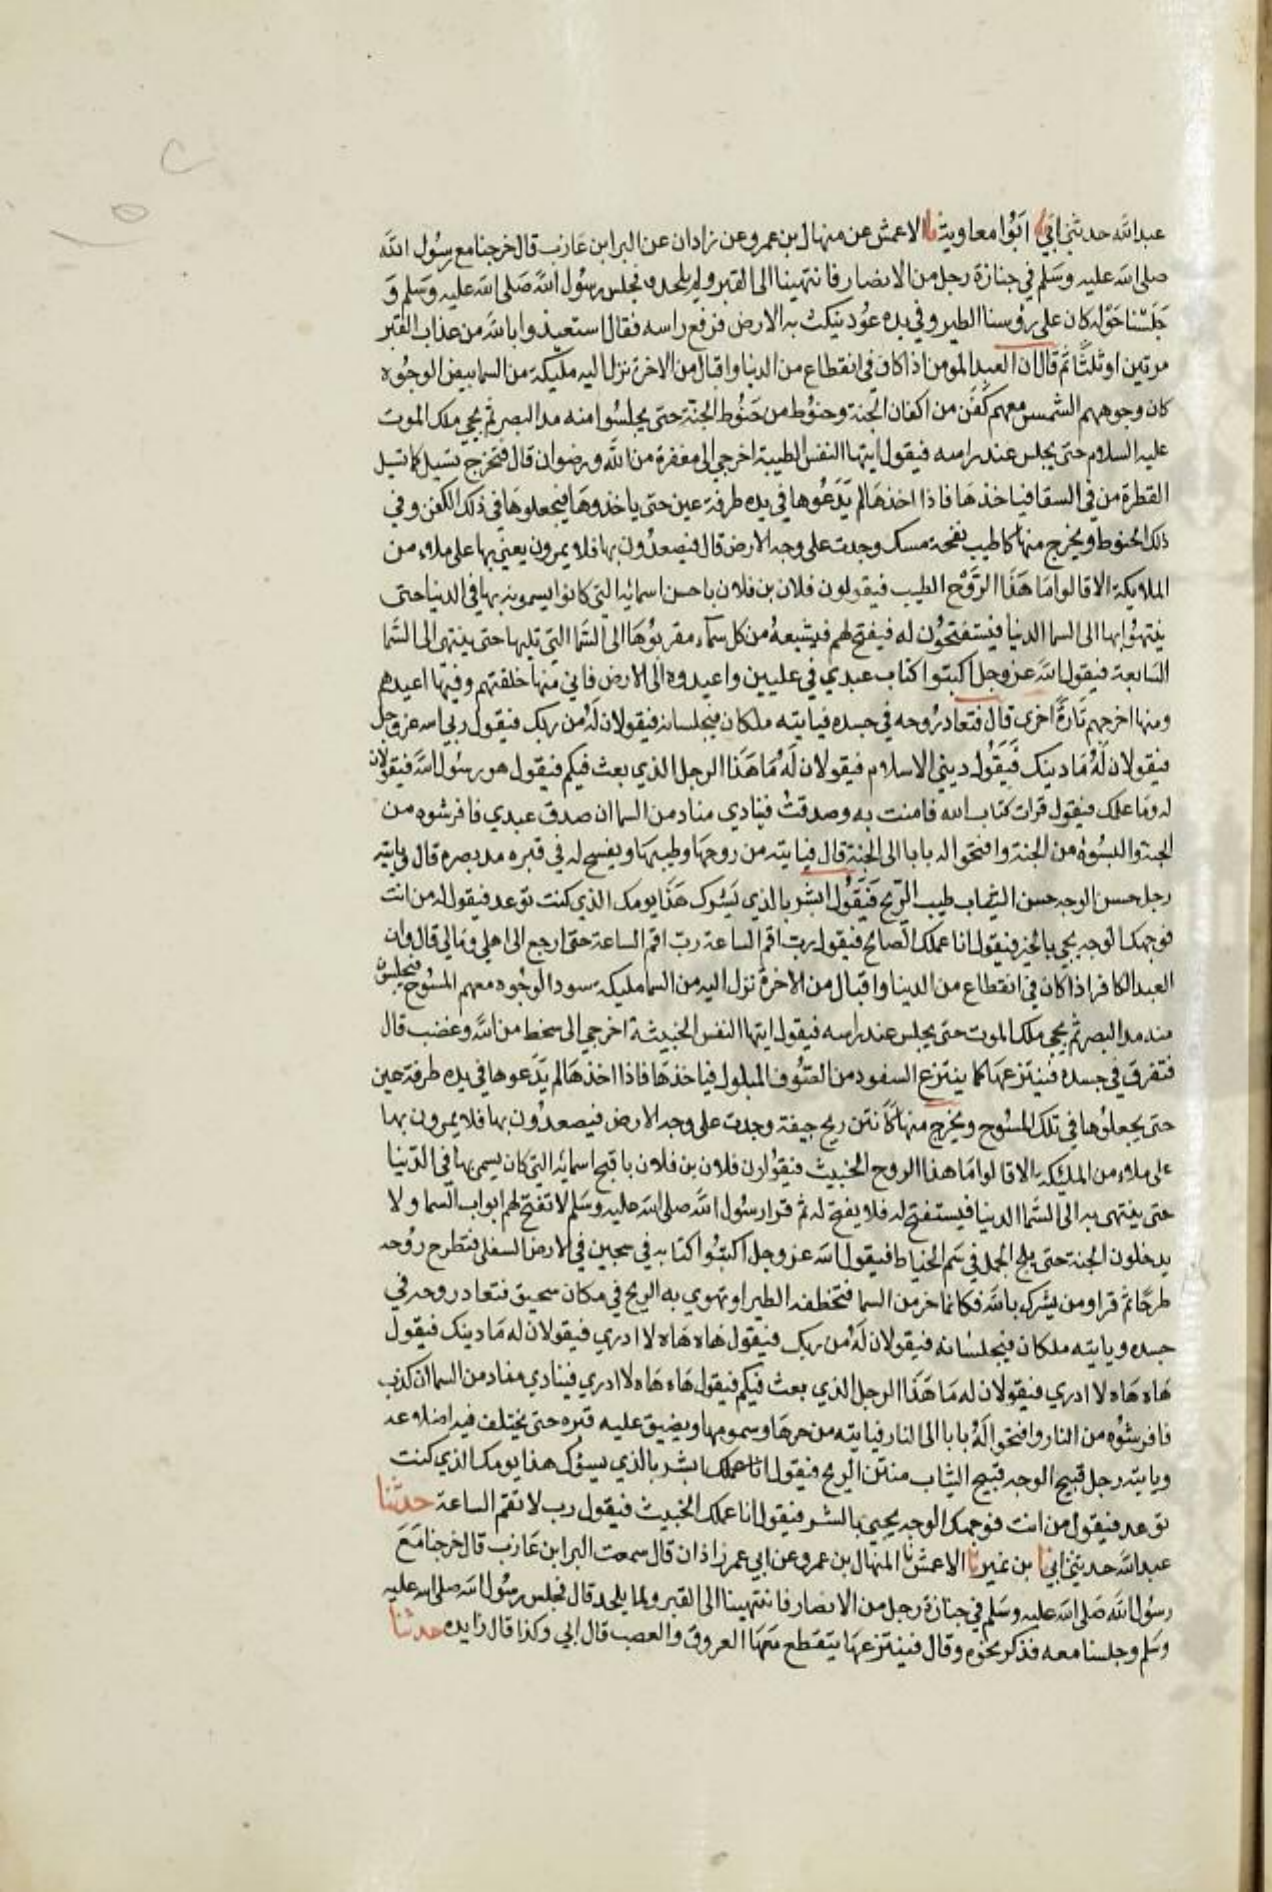 عبد الله حدثني ابي نا ابوا معاوية نا الاعمش عن منهال بن عمرو عن زادان عن البرا ابن عازب قال خرجنا مع رسول الله
صلى الله عليه وسلم في جنازة رجل من الانصار فانتهينا الى القبر ولم يلحد فجلس رسول الله صلى الله عليه وسلم و
جلسنا حوله كان على رؤسنا الطير وفي يده عود ينكث به الارض فرفع راسه فقال استعيذوا بالله من عذاب القبر
مرتين او ثلثا ثم قال ان العبد المومن اذا كان في انقطاع من الدنيا واقبال من الاخرة نزل اليه مليكة من السما بيض الوجوه
كان وجوههم الشمس معهم كفن من اكفان الجنة وحنوط من حنوط الجنة حتى يجلسوا منه مد البصر ثم يجي ملك الموت
عليه السلام حتى يجلس عند راسه فيقول ايتها النفس الطيبة اخرجي الى مغفرة من الله ورضوان قال فتخرج تسيل كما تسيل
القطرة من في السقا فياخذها فاذا اخذها لم يدعوها في يده طرفة عين حتى ياخذوها فيجعلوها في ذلك الكفن وفي
ذلك الحنوط ويخرج منها كاطيب نفحة مسك وجدت على وجه الارض قال فيصعدون بها فلا يمرون يعني بها على ملاء من
الملايكة الا قالوا ما هذا الروح الطيب فيقولون فلان بن فلان باحسن اسمائه التي كانوا يسمونه بها في الدنيا حتى
ينتهوا بها الى السما الدنيا فيستفتحون له فيفتح لهم فيشيعه من كل سماء مقربوها الى السما التي تليها حتى ينتهى الى السما
السابعة فيقول الله عز وجل اكتبوا كتاب عبدي في عليين واعيدوه الى الارض فاني منها خلقتهم وفيها اعيدهم
ومنها اخرجهم تارة اخرى قال فتعاد روحه في جسده فياتيه ملكان فيجلسانه فيقولان له من ربك فيقول ربي الله عز وجل
فيقولان له ما دينك فيقول ديني الاسلام فيقولان له ما هذا الرجل الذي بعث فيكم فيقول هو رسول الله فيقولان
له وما علمك فيقول قرات كتاب الله فامنت به وصدقت فينادي مناد من السما ان صدق عبدي فافرشوه من
الجنة والبسوه من الجنة وافتحوا له بابا الى الجنة قال فياتيه من روحها وطيبها ويفسح له في قبره مد بصره قال وياتيه
رجل حسن الوجه حسن الثياب طيب الريح فيقول ابشر بالذي يسرك هذا يومك الذي كنت توعد فيقول له من انت
فوجهك الوجه يجي بالخير فيقول انا عملك الصالح فيقول رب اقم الساعة رب اقم الساعة حتى ارجع الى اهلي ومالي قال وان
العبد الكافر اذا كان في انقطاع من الدنيا واقبال من الاخرة نزل اليه من السما مليكة سود الوجوه معهم المسوح فيجلسون
منه مد البصر ثم يجي ملك الموت حتى يجلس عند راسه فيقول ايتها النفس الخبيثة اخرجي الى سخط من الله وغضب قال
فتفرق في جسده فينتزعها كما ينتزع السفود من الصوف المبلول فياخذها فاذا اخذها لم يدعوها في يده طرفة عين
حتى يجعلوها في تلك المسوح ويخرج منها كانتن ريح جيفة وجدت على وجه الارض فيصعدون بها فلا يمرون بها
على ملاء من المليكة الا قالوا ما هذا الروح الخبيث فيقولون فلان بن فلان باقبح اسمائه التي كان يسمى بها في الدنيا
حتى ينتهى به الى السما الدنيا فيستفتح له فلا يفتح له ثم قرا رسول الله صلى الله عليه وسلم لا تفتح لهم ابواب السما ولا
يدخلون الجنة حتى يلج الجمل في سم الخياط فيقول الله عز وجل اكتبوا كتابه في سجين في الارض السفلى فتطرح روحه
طرحا ثم قرا ومن يشرك بالله فكانما خر من السما فتخطفه الطير او تهوي به الريح في مكان سحيق فتعاد روحه في
جسده وياتيه ملكان فيجلسانه فيقولان له من ربك فيقول هاه هاه لا ادري فيقولان له ما دينك فيقول
هاه هاه لا ادري فيقولان له ما هذا الرجل الذي بعث فيكم فيقول هاه هاه لا ادري فينادي مناد من السما ان كذب
فافرشوه من النار وافتحوا له بابا الى النار فياتيه من حرها وسمومها ويضيق عليه قبره حتى يختلف فيه اضلاعه
وياتيه رجل قبيح الوجه قبيح الثياب منتن الريح فيقول انا عملك ابشر بالذي يسؤك هذا يومك الذي كنت
توعد فيقول من انت فوجهك الوجه يجيى بالشر فيقول انا عملك الخبيث فيقول رب لا تقم الساعة حدثنا
عبد الله حدثني ابي نا بن نمير نا الاعمش نا المنهال بن عمرو عن ابي عمر زاذان قال سمعت البرا ابن عازب قال خرجنا مع
رسول الله صلى الله عليه وسلم في جنازة رجل من الانصار فانتهينا الى القبر ولما يلحد قال فجلس رسول الله صلى الله عليه
وسلم وجلسنا معه فذكر نحوه وقال فينتزعها يتقطع معها العروق والعصب قال ابي وكذا قال زايده حدثنا